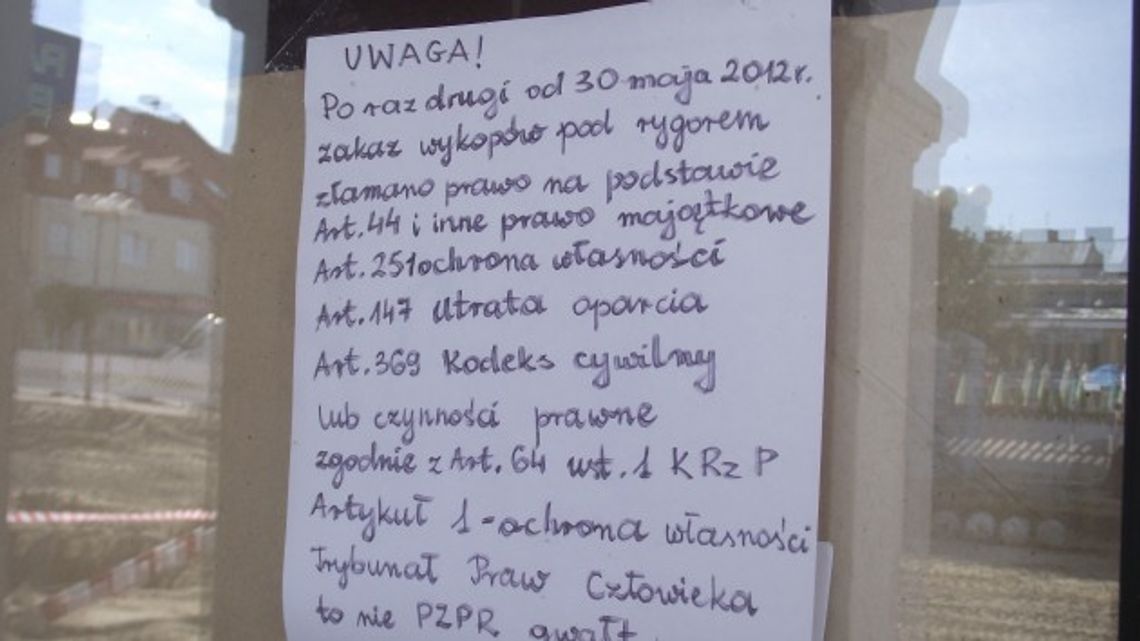 UWAGA!
Po raz drugi od 30 maja 2012 r.
zakaz wykopów pod rygorem
złamano prawo na podstawie
Art. 44 i inne prawo majątkowe
Art. 251 ochrona własności
Art. 147 Utrata oparcia
Art. 369 Kodeks cywilny
lub czynności prawne
zgodnie z Art. 64 ust. 1 K Rz P
Artykuł 1 - ochrona własności
Trybunał Praw Człowieka
to nie PZPR gwałt